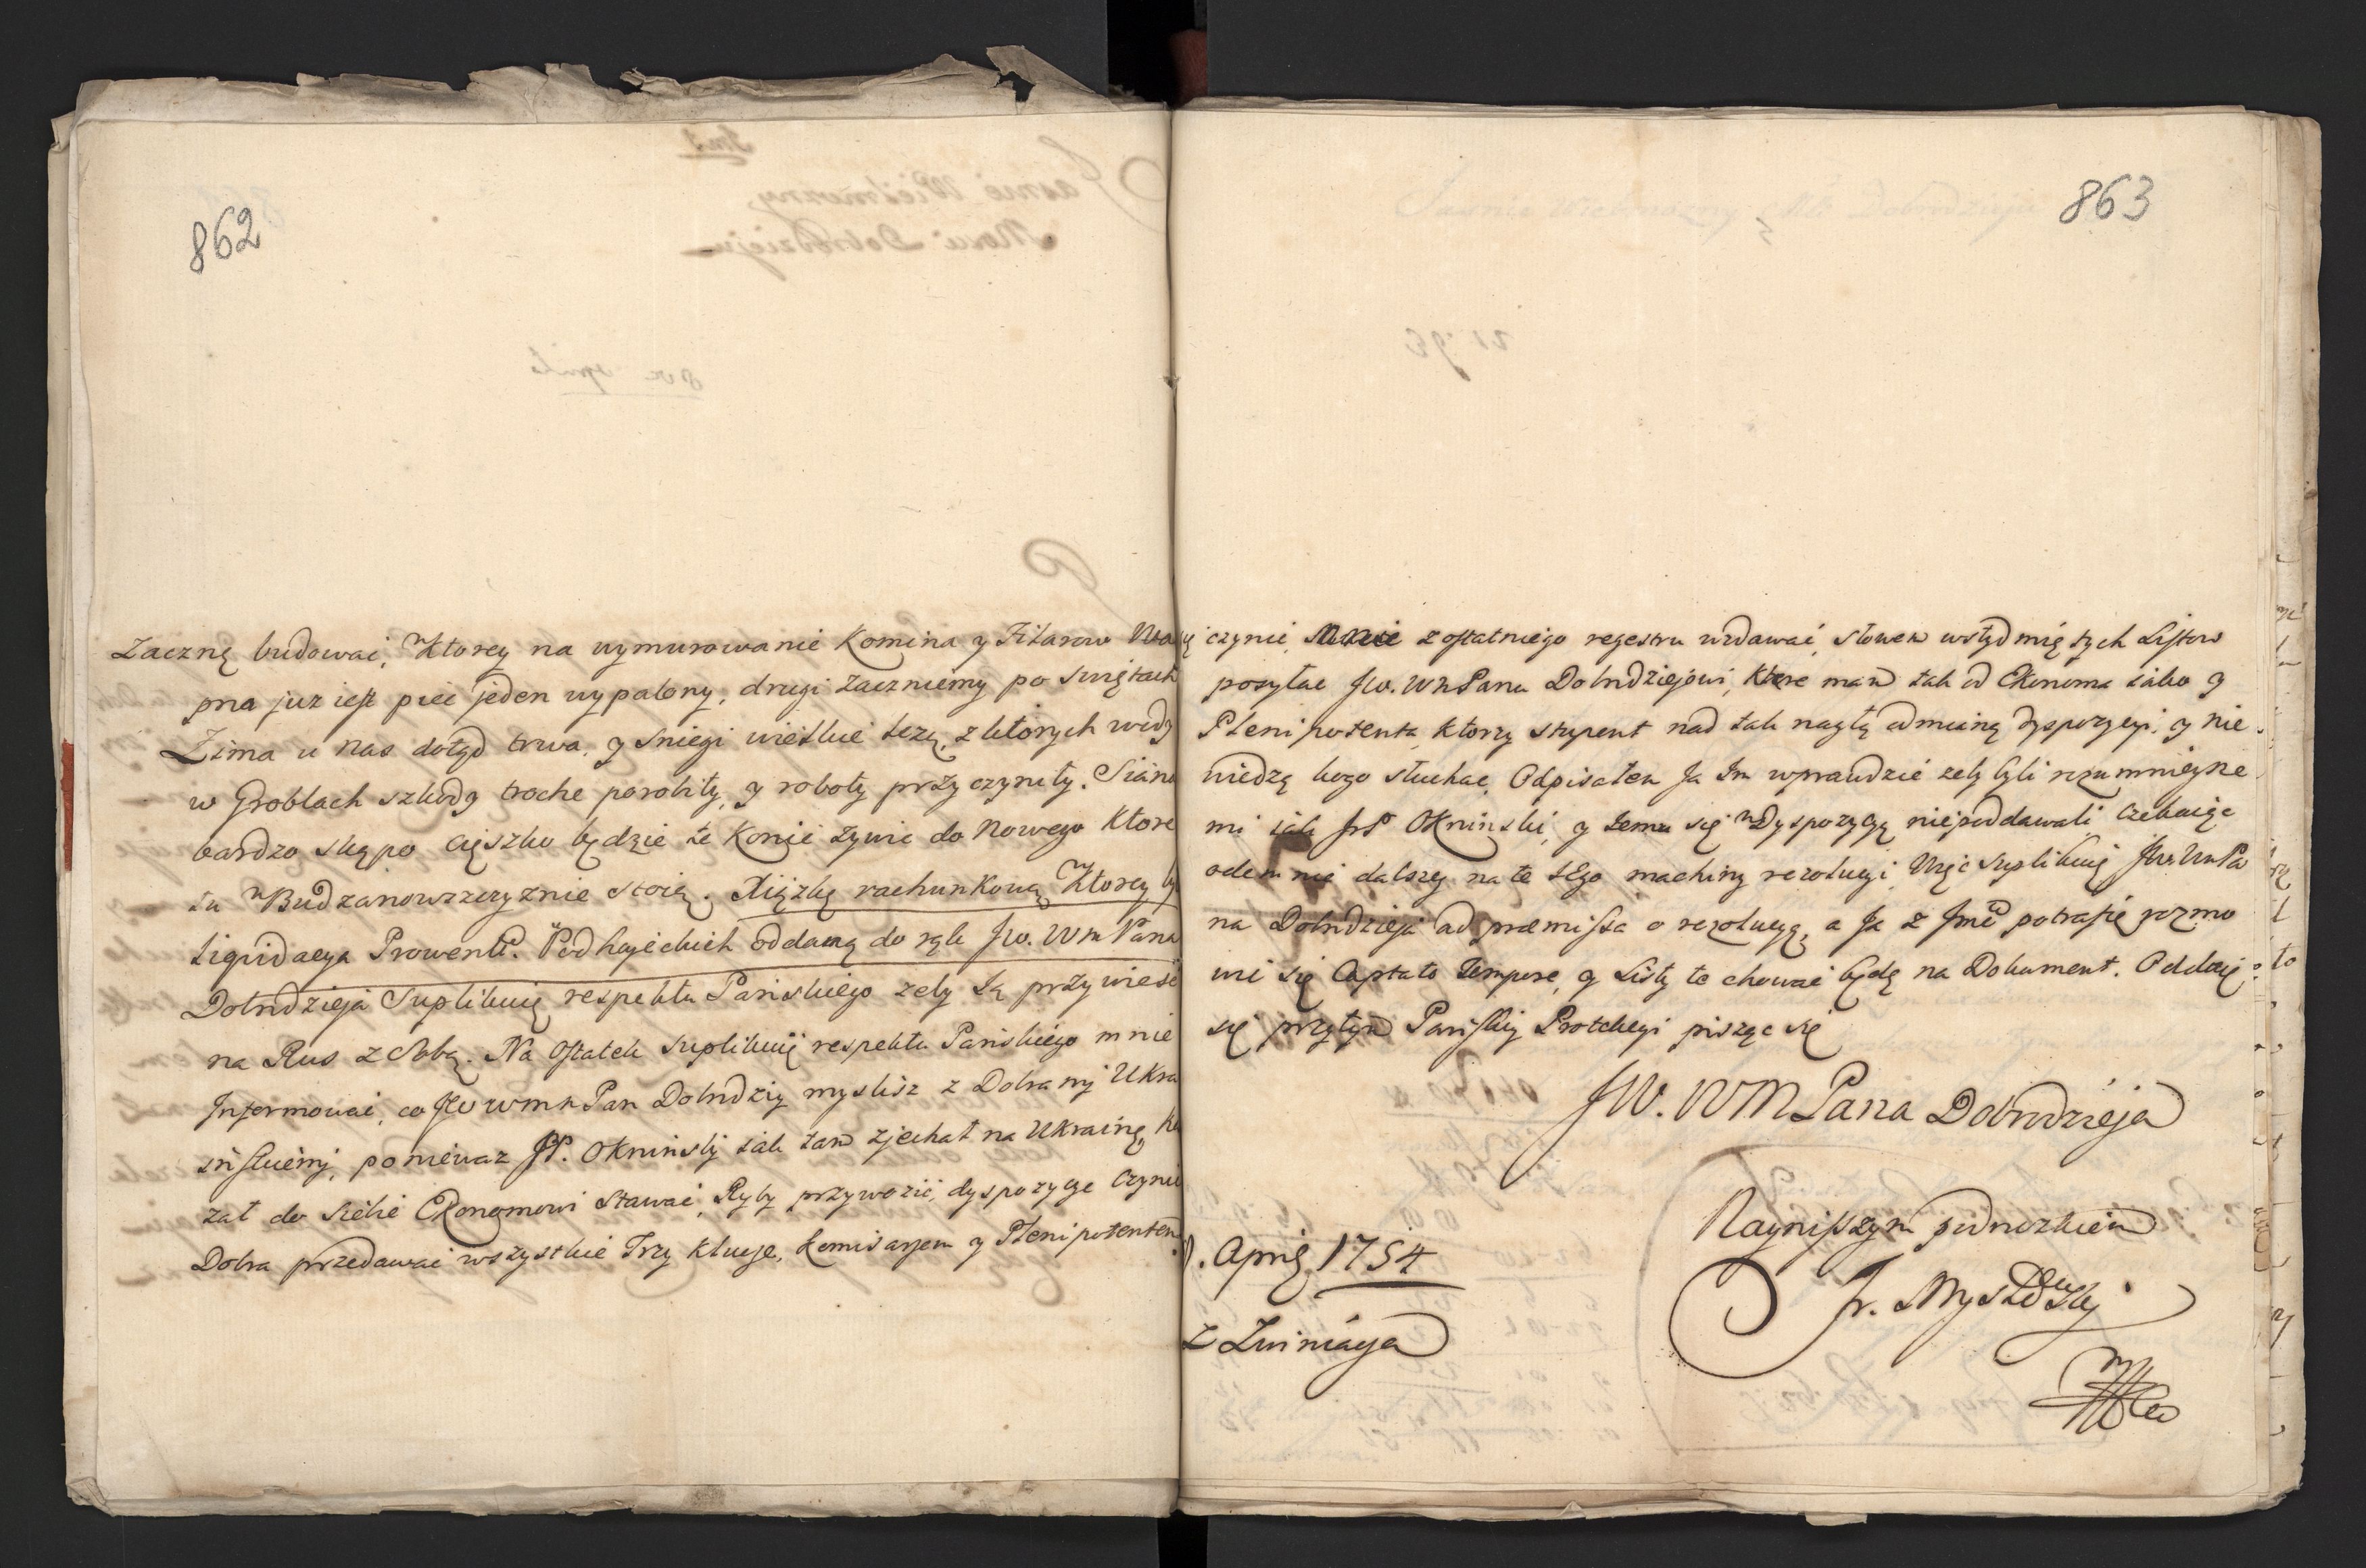 862
Zacznę budować, w Ktorey na wymurowanie Komina y Filarow Wa
pna juz iest piec jeden wypalony, drugi zaczniemy po Swiętach
Zima u nas dotąd trwa, y Sniegi wielkie lezą, z ktorych wody
w Groblach szkody troche porobiły, y roboty przyczyniły. Siana
bardzo skąpo cięszko będzie te Konie zywic do Nowego Ktore
tu w Budzanowszczyznie stoią. Xiązkę rachunkową w Ktorey
Liqvidacya Prowent. Podhayeckich oddaną do rąk JW. WM Pana
Dobrodzieja Suplikuię respektu Pańskiego zeby Ją przywiesc
na Rus z Sobą. Na Ostatek suplikuię respektu Pańskiego mnie
Informować, co JW WM Pan Dobrodziey myslisz z Dobrami Ukra
ińskiemi, poniewaz JP. Okninsky iak tam zjechał na Ukrainę, Ka
zał do siebie Ekonomowi stawać, Ryby przywozić, dyspozycye czynić
Dobra przedawać wszystkie Trzy Klucze, Komisarzem y Plenipotentem
863
się czynić, z ostatniego regestru wydawać, słowem wstyd mię tych Listow
posyłac JW. WM Panu Dobrodziejowi, Ktore mam tak od Ekonoma iako y
Plenipotenta, Ktorzy stupent nad tak nagłą odmianą dyspozycyi, y nie
wiedzą kogo słuchac, Odpisałem Ja Im wprawdzie zeby byli rozumnieysze
mi iak JP Okninski, y temu się w Dyspozycyą niepoddawali czekaiąc
odemnie dalszey na te tego machiny rezolucyi Więc Suplikuię JW WM Pa
na Dobrodzieja ad præmissa o rezolucyą, a Ja z Jmcią potrafię rozmo
wić się Captato tempore, y Listy te chować będę na Dokument. Oddaię
się przytym Pańskiey Protekcyi pisząc się
JW. WM Pana Dobrodzieja
Nayniszszym podnozkiem
April 1754
z Zwiniacza